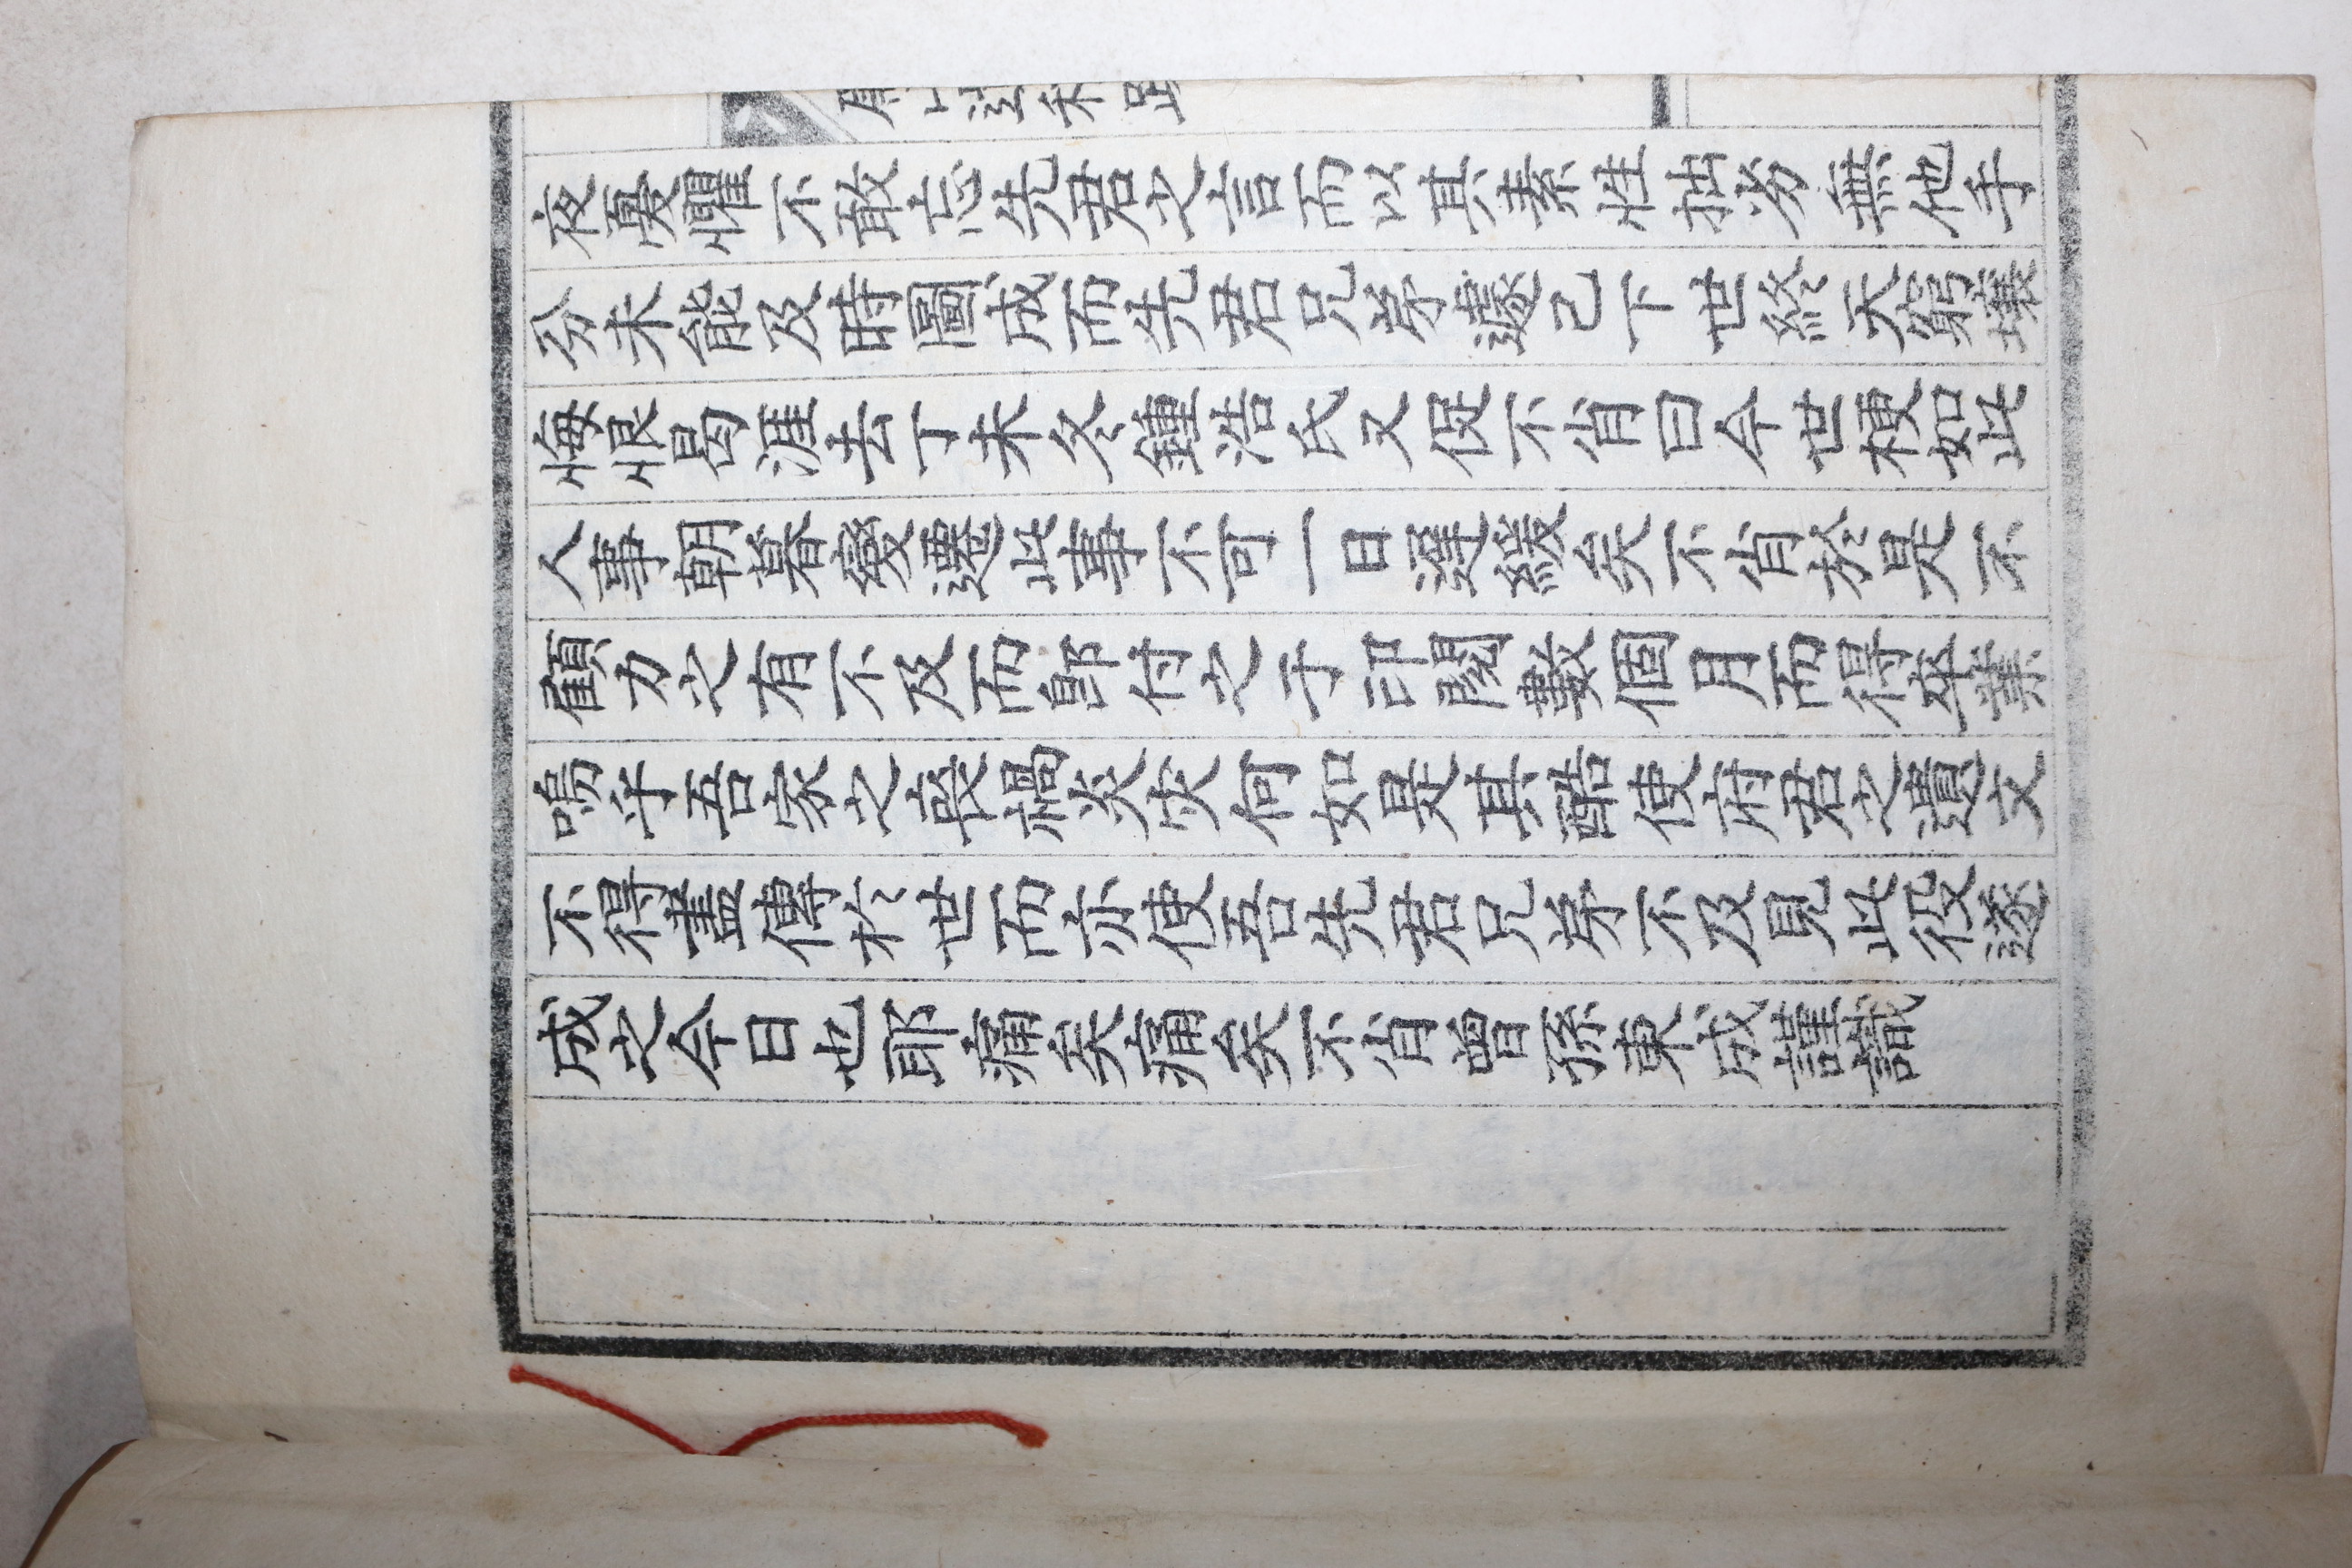 夜憂懼不敢忘先君之言而以其素性拙劣無他手
分未能及時圖成而先君兄弟遽已下世終天窮壤
悔恨曷涯去丁未冬鍾浩氏又促不肖曰今世梗如此
人事朝暮變遷此事不可一日遲緩矣不肖於是不
顧力之有不及而卽付之于印閱數個月而得卒業
嗚乎吾家之喪禍炎灾何如是其酷使府君之遺文
不得盡傳於世而亦使吾先君兄弟不及見此役遂
成之今日也耶痛矣痛矣不肖曾孫東成謹識